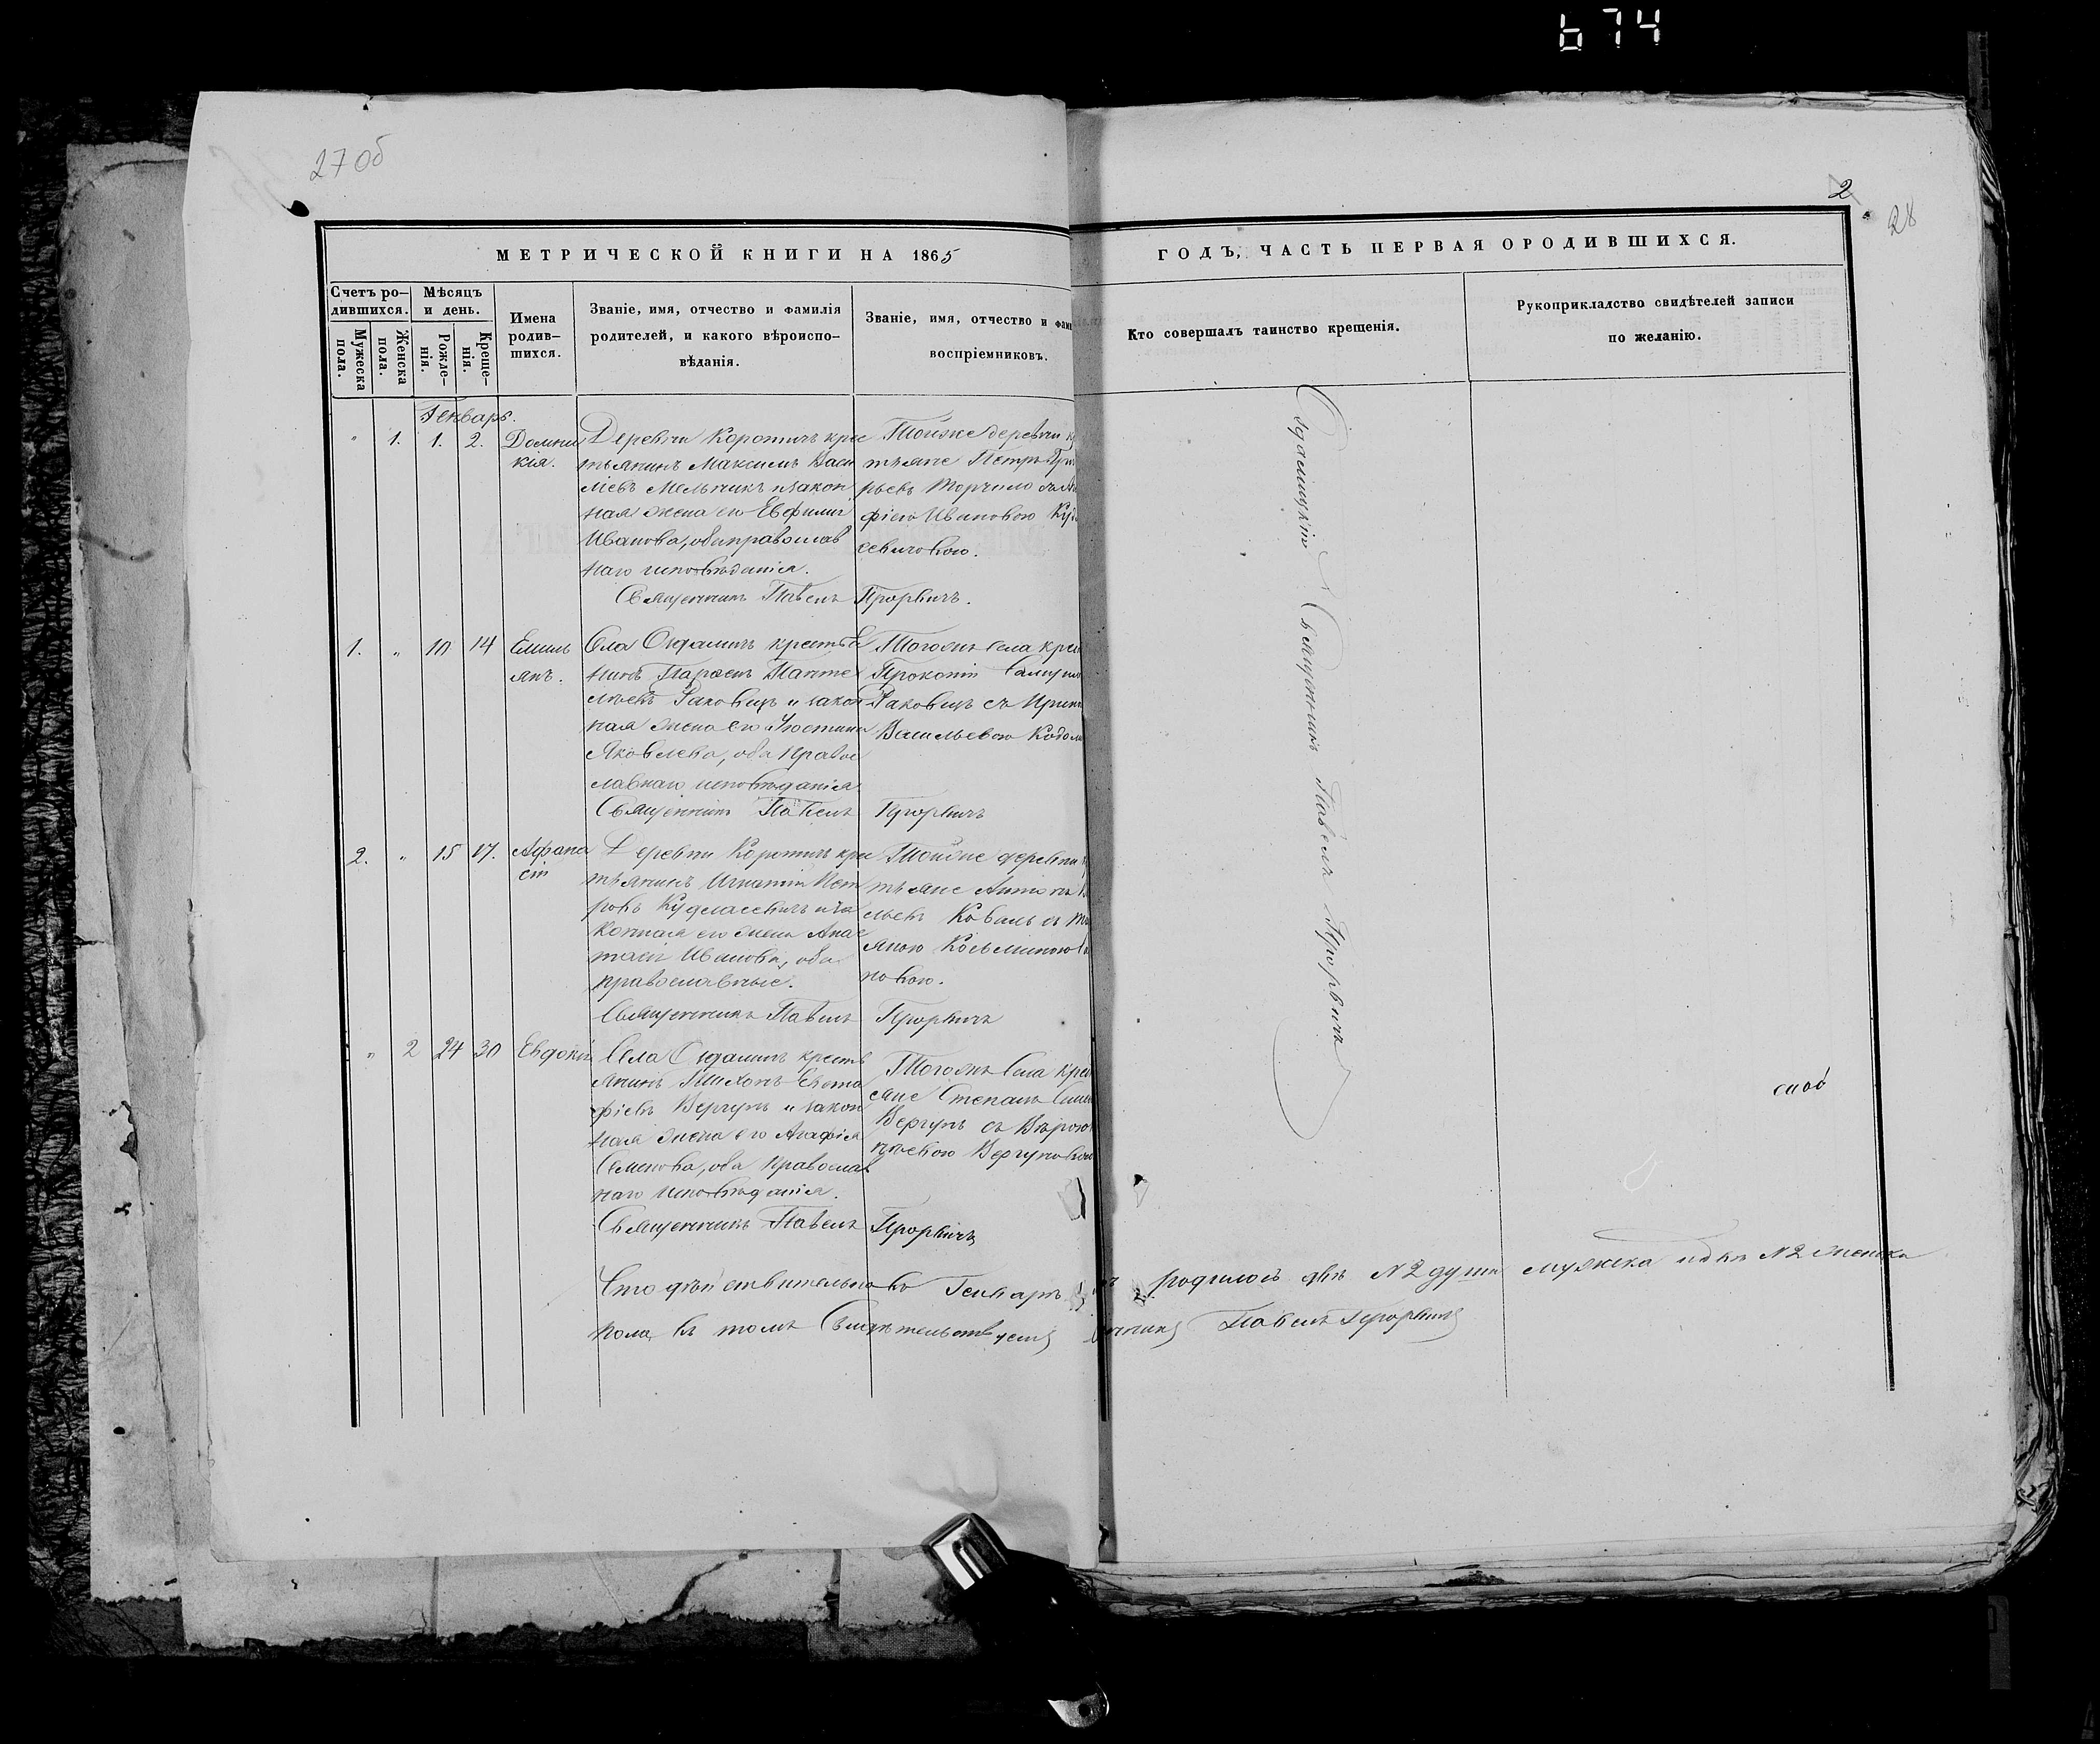 674
27 об
2
28
МЕТРИЧЕСКОЙ КНИГИ НА 1865
ГОДЪ, ЧАСТЬ ПЕРВАЯ ОРОДИВШИХСЯ.
Счетъ ро-
дившихся.
Мужеска
пола.
Женска
пола.
Мѣсяцъ
и день.
Рожде-
нія.
Креще-
нія.
Имена
родив-
шихся.
Званіе, имя, отчество и фамилія
родителей, и какого вѣроиспо-
вѣданія.
Званіе, имя, отчество и фами
воспріемниковъ.
Кто совершалъ таинство крещенія.
Рукоприкладство свидѣтелей записи
по желанію.
Генварь.
" 1. 1. 2. Домни
кія.
Деревни Коротичъ крес
тьянинъ Максимъ Васи
ліевъ Мельникъ изакон
ная жена его Евфимія
Иванова, оба православ
наго исповѣданія.
Священникъ Павелъ Прорвичъ.
Тойже деревни к
тьяне Петръ Гри
рьевъ Торчило съ
фіею Ивановою
севичовою.
1. " 10 14 Емиль
янъ.
Села крестья
нинъ Парѳенъ Панте
леевъ Раковецъ и закон
ная жена его Іюстина
Яковлева, оба Правос
лавнаго исповѣданія
Священникъ Павелъ Прорвичъ
Тогожъ Села крес
Прокопій Самуил
Раковецъ съ Ирин
Васильевою
2. " 15 17. Афана
сій
Деревни Коротичъ крес
тьянинъ Игнатій Пет
ровъ Кудласевичъ иза
конная его жена Анас
тасія Иванова, оба
православные.
Священникъ Павелъ Прорвичъ
Тойже деревни к
тьяне Антонъ
льевъ Коваль съ
яною Козьминою
новою.
" 2 24 30 Евдокія
Села крестья
янинъ Тихонъ Евста
фіевъ Вергунъ и закон
ная жена его Агафія
Семенова, оба Православ
наго исповѣданія.
Священникъ Павелъ Прорвичъ
Тогожъ Села крес
яне Степанъ
Вергунъ съ Вѣрою
Вергуновою
Священникъ Павелъ Прорвичъ
Что дѣйствительно въ Генварѣ родилось двѣ №2 души мужска идвѣ №2 женска
пола въ томъ Свидѣтельствуетъ Павелъ Прорвичъ